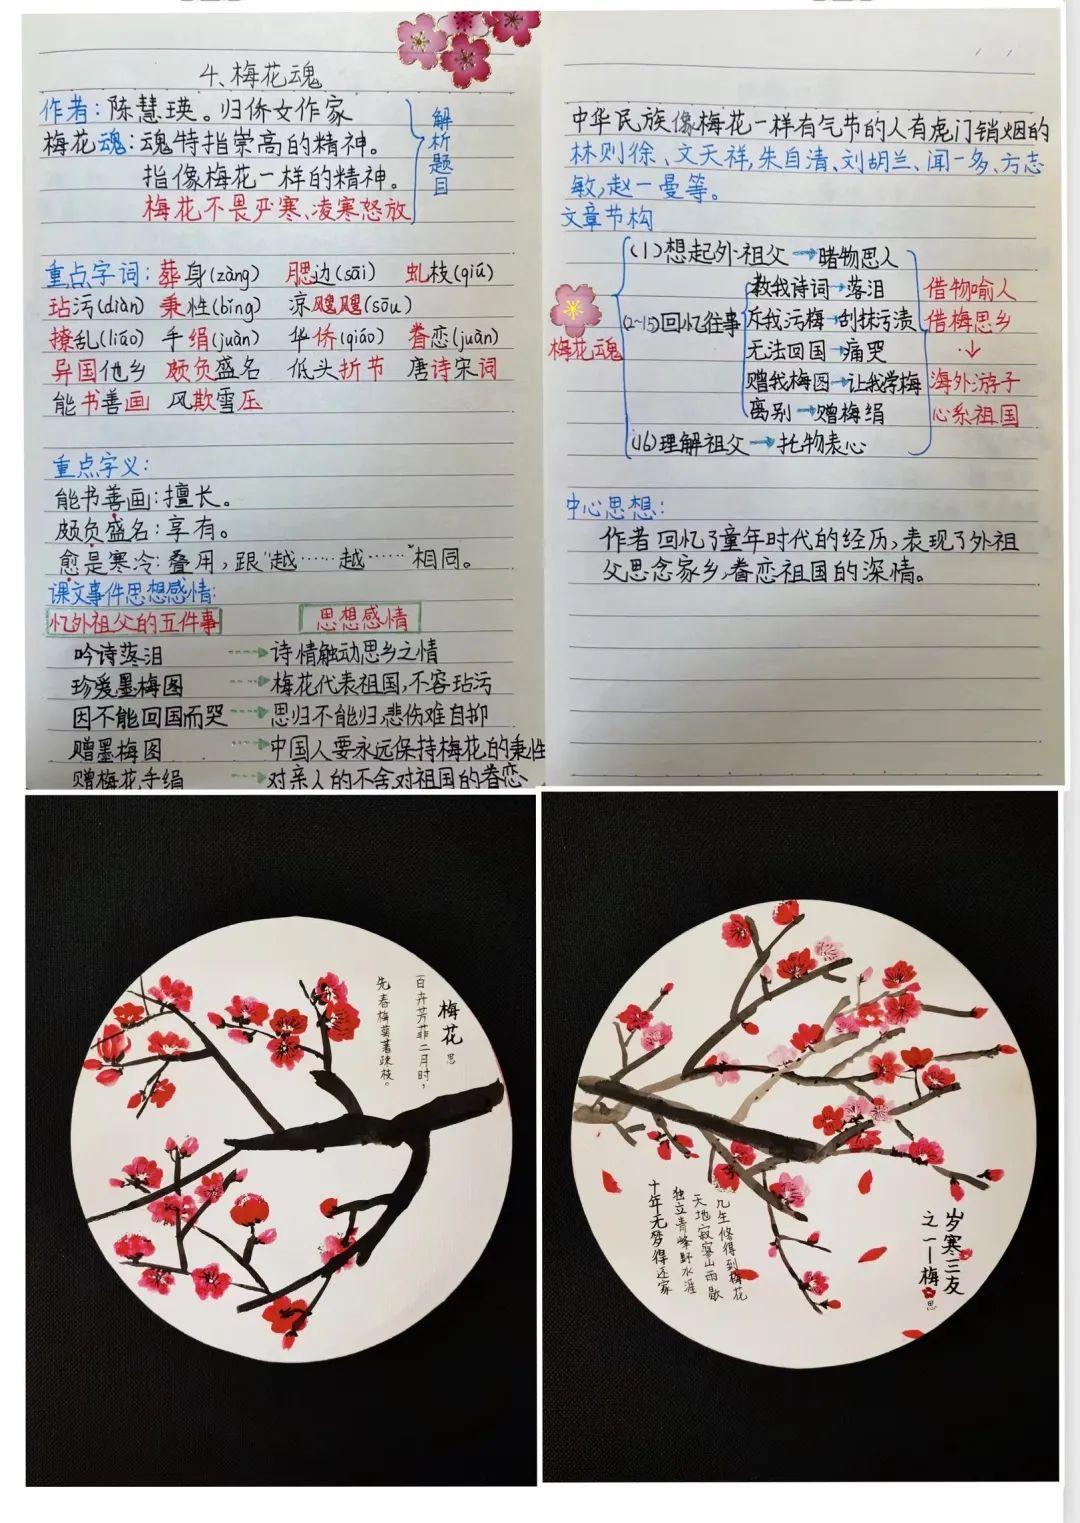 4、梅花魂
作者：陈慧瑛。归侨女作家
梅花魂：魂特指崇高的精神。
指像梅花一样的精神。
梅花不畏严寒、凌寒怒放
解析题目
重点字词：葬身(zàng) 腮边(sāi) 虬枝(qiú)
玷污(diàn) 秉性(bǐng) 凉飕飕(sōu)
撩乱(liáo) 手绢(juàn) 华侨(qiáo) 眷恋(juàn)
异国他乡 颇负盛名 低头折节 唐诗宋词
能书善画 风欺雪压
重点字义：
能书善画：擅长。
颇负盛名：享有。
愈是寒冷：叠用，跟"越……越……"相同。
课文事件思想感情：
忆外祖父的五件事 思想感情
吟诗落泪 诗情触动思乡之情
珍爱墨梅图 梅花代表祖国，不容玷污
因不能回国而哭 思归不能归，悲伤难自抑
赠墨梅图 中国人要永远保持梅花的秉性
赠梅花手绢 对亲人的不舍对祖国的眷恋
中华民族像梅花一样有气节的人有虎门销烟的
林则徐、文天祥，朱自清、刘胡兰、闻一多、方志
敏，赵一曼等。
文章节构
梅花魂
(1)想起外祖父→睹物思人
(2~15)回忆往事
教我诗词→落泪
斥我污梅→刮抹污渍
无法回国→痛哭
赠我梅图→让我学梅
离别→赠梅绢
(16)理解祖父→托物表心
借物喻人
借梅思乡
↓
海外游子
心系祖国
中心思想：
作者回忆了童年时代的经历，表现了外祖
父思念家乡，眷恋祖国的深情。
梅花
思
百卉芳菲二月时，
先春梅萼著疎枝。
岁寒三友
之一—梅
思
几生修得到梅花
天地寂寥山雨歇
独立青峰野水涯
十年无梦得还家